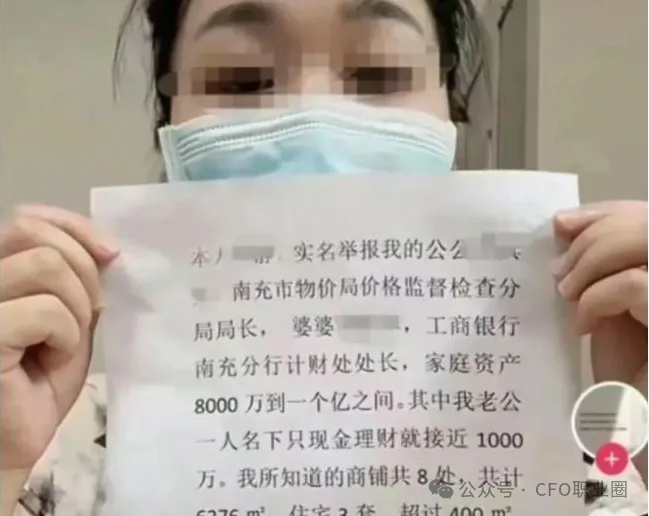 本人
实名举报我的公公
南充市物价局价格监督检查分
局局长， 婆婆
，工商银行
南充分行计财处处长，家庭资产
8000 万到一个亿之间。其中我老公
一人名下只现金理财就接近 1000
万。我所知道的商铺共 8 处，共计
6276 ㎡，住宅 3 套，超过 400 ㎡
公众号 · CFO职业圈